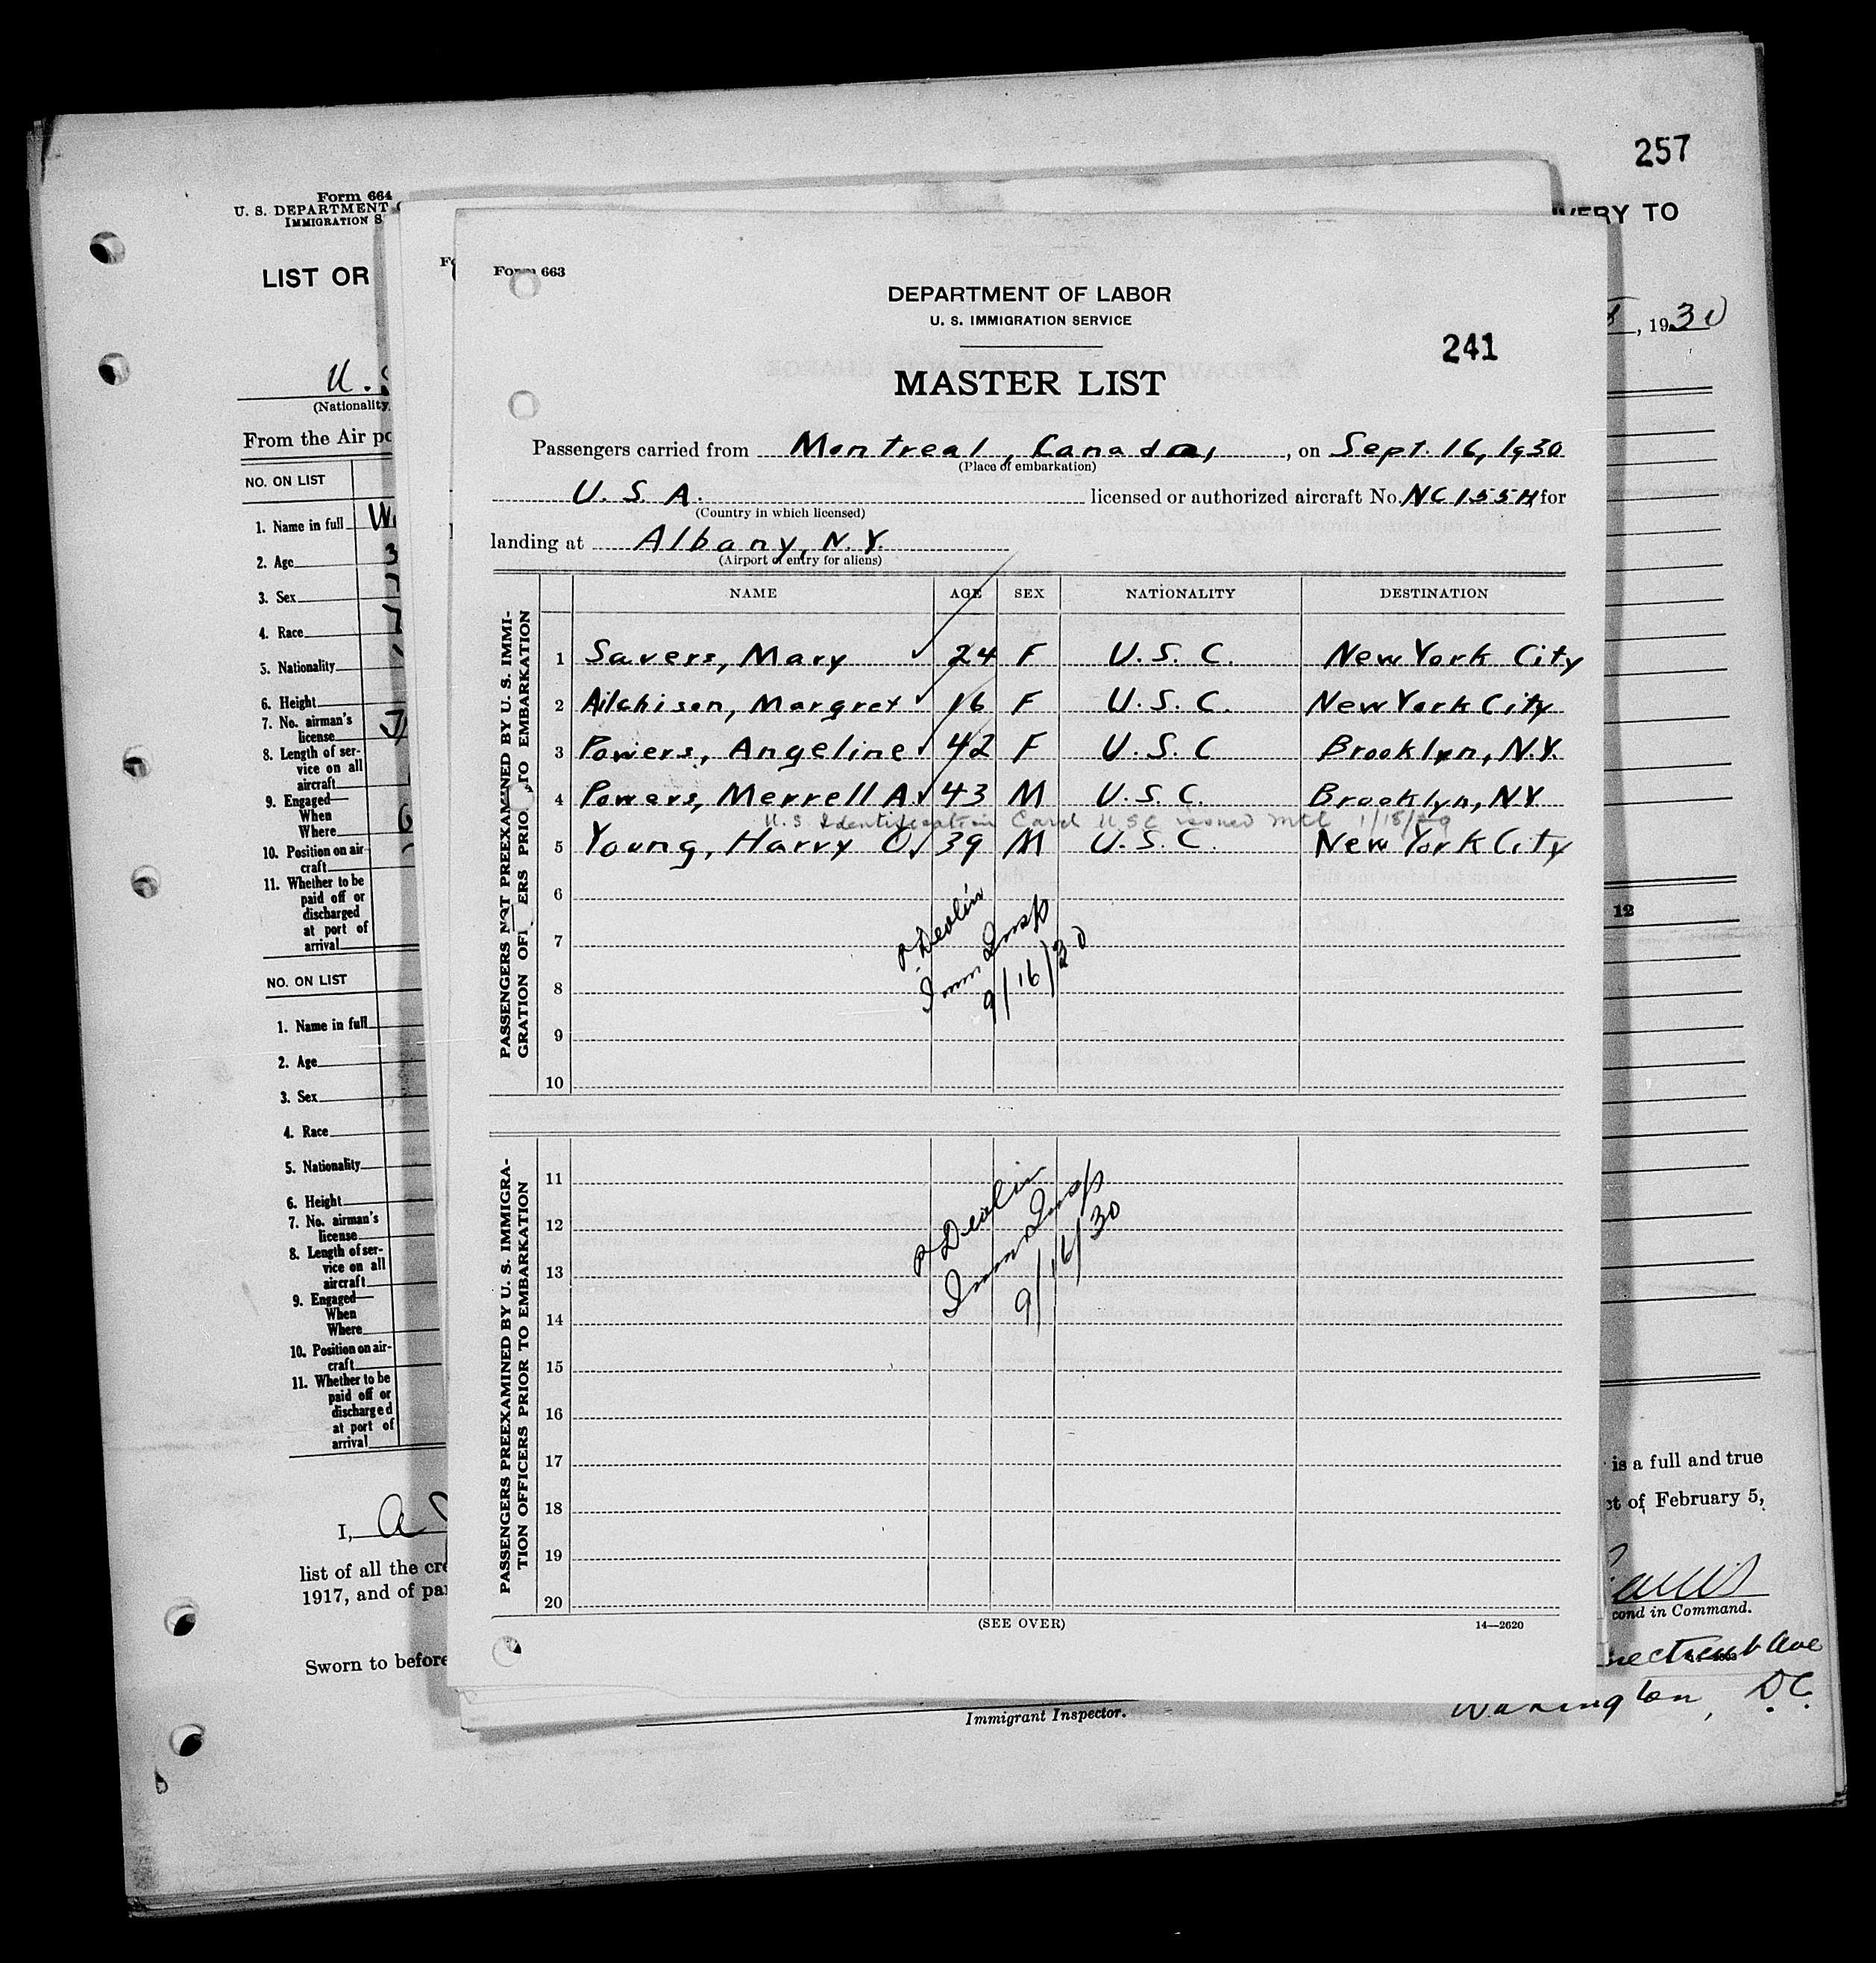 257
Form 664
U. S. DEPARTMENT
IMMIGRATION S
LIST OR
VERY TO
, 1930
U. S
(Nationality
From the Air po
NO. ON LIST
1. Name in full
2. Age
3. Sex
4. Race
5. Nationality
6. Height
7. No. airman's
license
8. Length of ser-
vice on all
aircraft
9. Engaged—
When
Where
10. Position on air
craft
11. Whether to be
paid off or
discharged
at port of
arrival
12
NO. ON LIST
1. Name in full
2. Age
3. Sex
4. Race
5. Nationality
6. Height
7. No. airman's
license
8. Length of ser-
vice on all
aircraft
9. Engaged—
When
Where
10. Position on air-
craft
11. Whether to be
paid off or
discharged
at port of
arrival
I,
is a full and true
list of all the cre
ct of February 5,
1917, and of pa
cond in Command.
Sworn to before
Ave
Washington, D.C.
Immigrant Inspector.
Form 663
DEPARTMENT OF LABOR
U. S. IMMIGRATION SERVICE
241
MASTER LIST
Passengers carried from Montreal, Canada, , on Sept. 16, 1930
(Place of embarkation)
U. S. A. licensed or authorized aircraft No. NC 155H, for
(Country in which licensed)
landing at Albany, N. Y.
(Airport of entry for aliens)
NAME AGE SEX NATIONALITY DESTINATION
PASSENGERS NOT PREEXAMINED BY U. S. IMMI-
GRATION OFFI ERS PRIOR TO EMBARKATION
1 Savers, Mary ✓ 24 F U. S. C. New York City
2 Aitchison, Margret ✓ 16 F U. S. C. New York City
3 Powers, Angeline ✓ 42 F U. S. C Brooklyn, N.Y.
4 Powers, Merrell A. ✓ 43 M U. S. C. Brooklyn, NY
U.S. Identification Card USC issued Mtl 1/18/29
5 Young, Harry O. ✓ 39 M U. S. C. New York City
6
7
8
9
10
P Devlin
Imm Insp
9/16/30
PASSENGERS PREEXAMINED BY U. S. IMMIGRA-
TION OFFICERS PRIOR TO EMBARKATION
11
12
13
14
15
16
17
18
19
20
P Devlin
Imm Insp
9/16/30
(SEE OVER)
14—2620